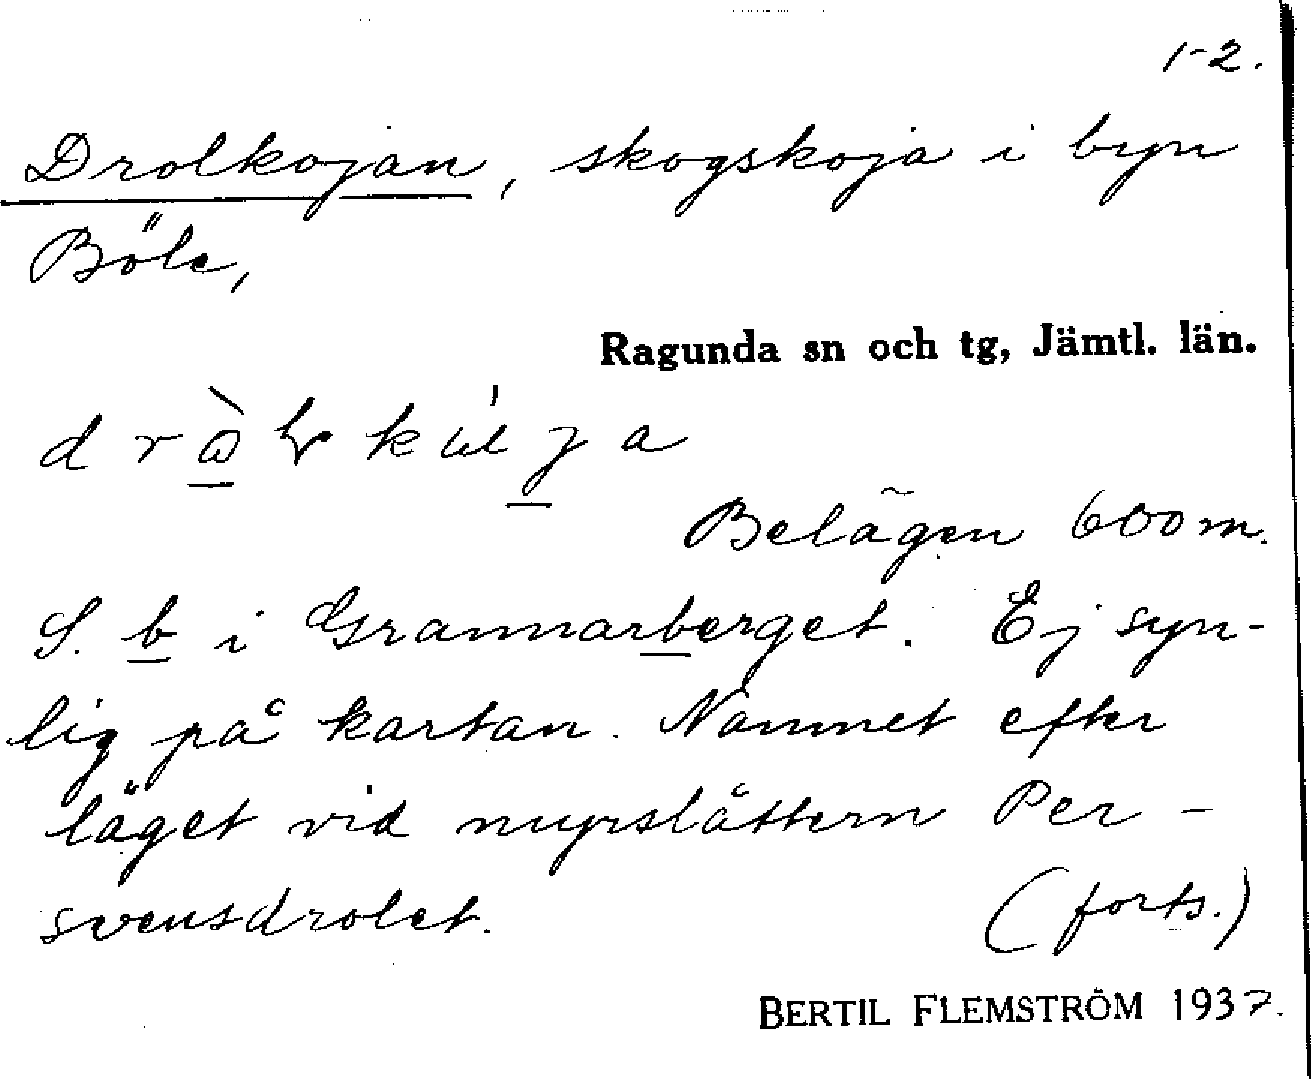 1-2.
Drolkojan, skogskoja i byn
Böle,
Ragunda sn och tg, Jämtl. län.
Belägen 600 m.
S. b i Grannarberget. Ej syn-
lig på kartan. Namnet efter
läget vid myrslåttern Per-
svensdrolet. (forts.)
BERTIL FLEMSTRÖM 1937.